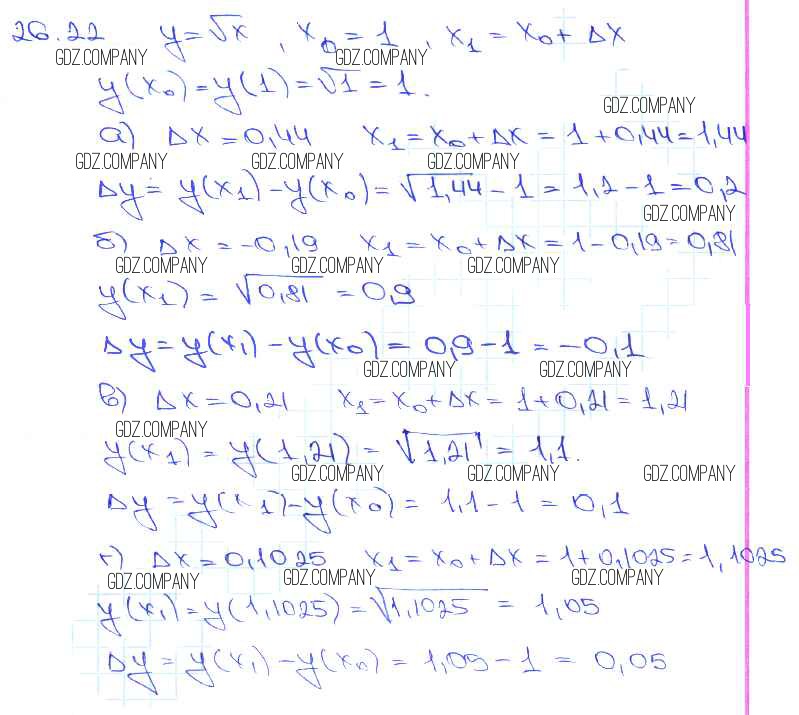 26.22 y=√x, x₀=1, x₁=x₀+Δx
GDZ.COMPANY GDZ.COMPANY
y(x₀)=y(1)=√1=1.
GDZ.COMPANY
а) Δx=0,44 x₁=x₀+Δx=1+0,44=1,44
GDZ.COMPANY GDZ.COMPANY GDZ.COMPANY
Δy=y(x₁)-y(x₀)=√1,44-1=1,2-1=0,2
GDZ.COMPANY
б) Δx=-0,19 x₁=x₀+Δx=1-0,19=0,81
GDZ.COMPANY GDZ.COMPANY GDZ.COMPANY
y(x₁)=√0,81=0,9
Δy=y(x₁)-y(x₀)=0,9-1=-0,1
GDZ.COMPANY GDZ.COMPANY
в) Δx=0,21 x₁=x₀+Δx=1+0,21=1,21
GDZ.COMPANY
y(x₁)=y(1,21)=√1,21=1,1.
GDZ.COMPANY GDZ.COMPANY GDZ.COMPANY
Δy=y(x₁)-y(x₀)=1,1-1=0,1
г) Δx=0,1025 x₁=x₀+Δx=1+0,1025=1,1025
GDZ.COMPANY GDZ.COMPANY GDZ.COMPANY
y(x₁)=y(1,1025)=√1,1025=1,05
Δy=y(x₁)-y(x₀)=1,05-1=0,05